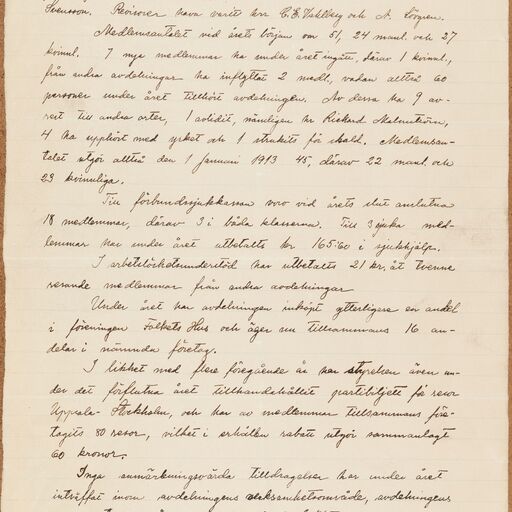 Svensson. Revisorer hava varit hrr C. E. Vahlberg och A. Lövgren.
Medlemsantalet vid årets början om 51, 24 manl. och 27
kvinnl. 7 nya medlemmar ha under året ingått, därav 1 kvinnl.,
från andra avdelningar ha inflyttat 2 medl., vadan alltså 60
personer under året tillhört avdelningen. Av dessa ha 9 av-
rest till andra orter, 1 avlidit, nämligen hr Rickard Malmström,
4 ha upphört med yrket och 1 strukits för skuld. Medlemsan-
talet utgör alltså den 1 januari 1913 45, därav 22 manl. och
23 kvinnliga.
Till förbundssjukkassan voro vid årets slut anslutna
18 medlemmar, därav 3 i båda klasserna. Till 3 sjuka med-
lemmar har under året utbetalts kr 165.60 i sjukhjälp.
I arbetslöshetsunderstöd har utbetalts 21 kr. åt tvenne
resande medlemmar från andra avdelningar
Under året har avdelningen inköpt ytterligare en andel
i föreningen Folkets Hus och äger nu tillsammans 16 an-
delar i nämnda företag.
I likhet med flere föregående år har styrelsen även un-
der det förflutna året tillhandahållit partibiljett för resor
Uppsala-Stockholm, och har av medlemmar tillsammans före-
tagits 80 resor, vilket i erhållen rabatt utgör sammanlagt
60 kronor.
Inga anmärkningsvärda tilldragelser har under året
inträffat inom avdelningens verksamhetsområde, avdelningens